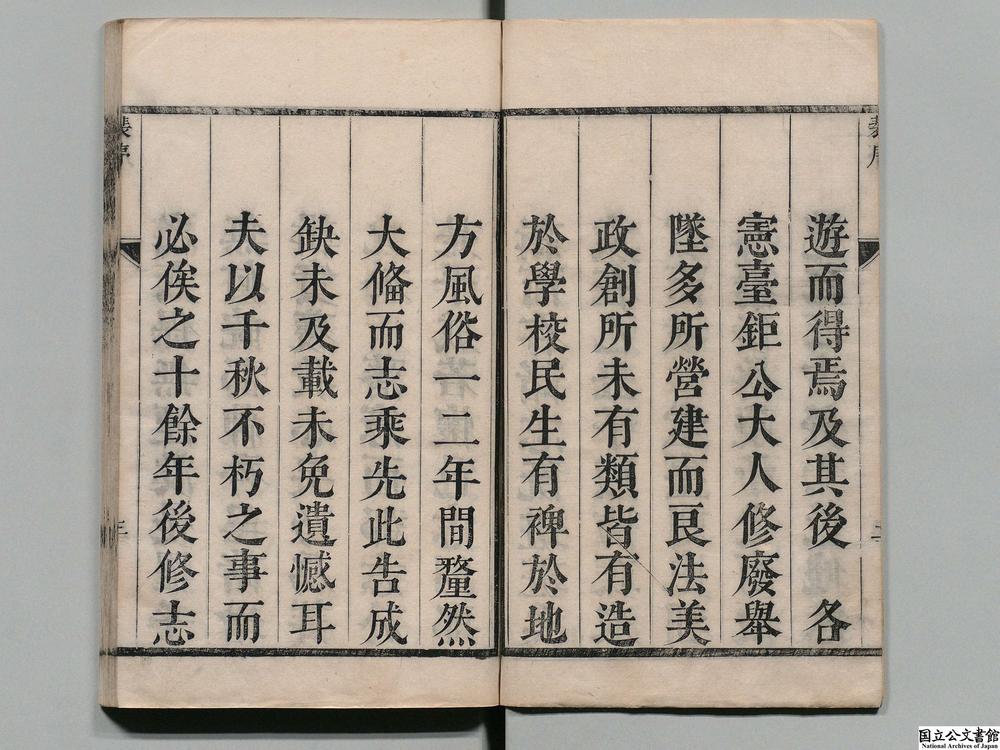 遊而得焉及其後　各
憲臺鉅公大人修廢舉
墜多所營建而良法美
政創所未有類皆有造
於學校民生有裨於地
方風俗一二年間犛然
大俻而志乘先此告成
缺未及載未免遺憾耳
夫以千秋不朽之事而
必俟之十餘年後修志
裴序
三
国立公文書館
National Archives of Japan